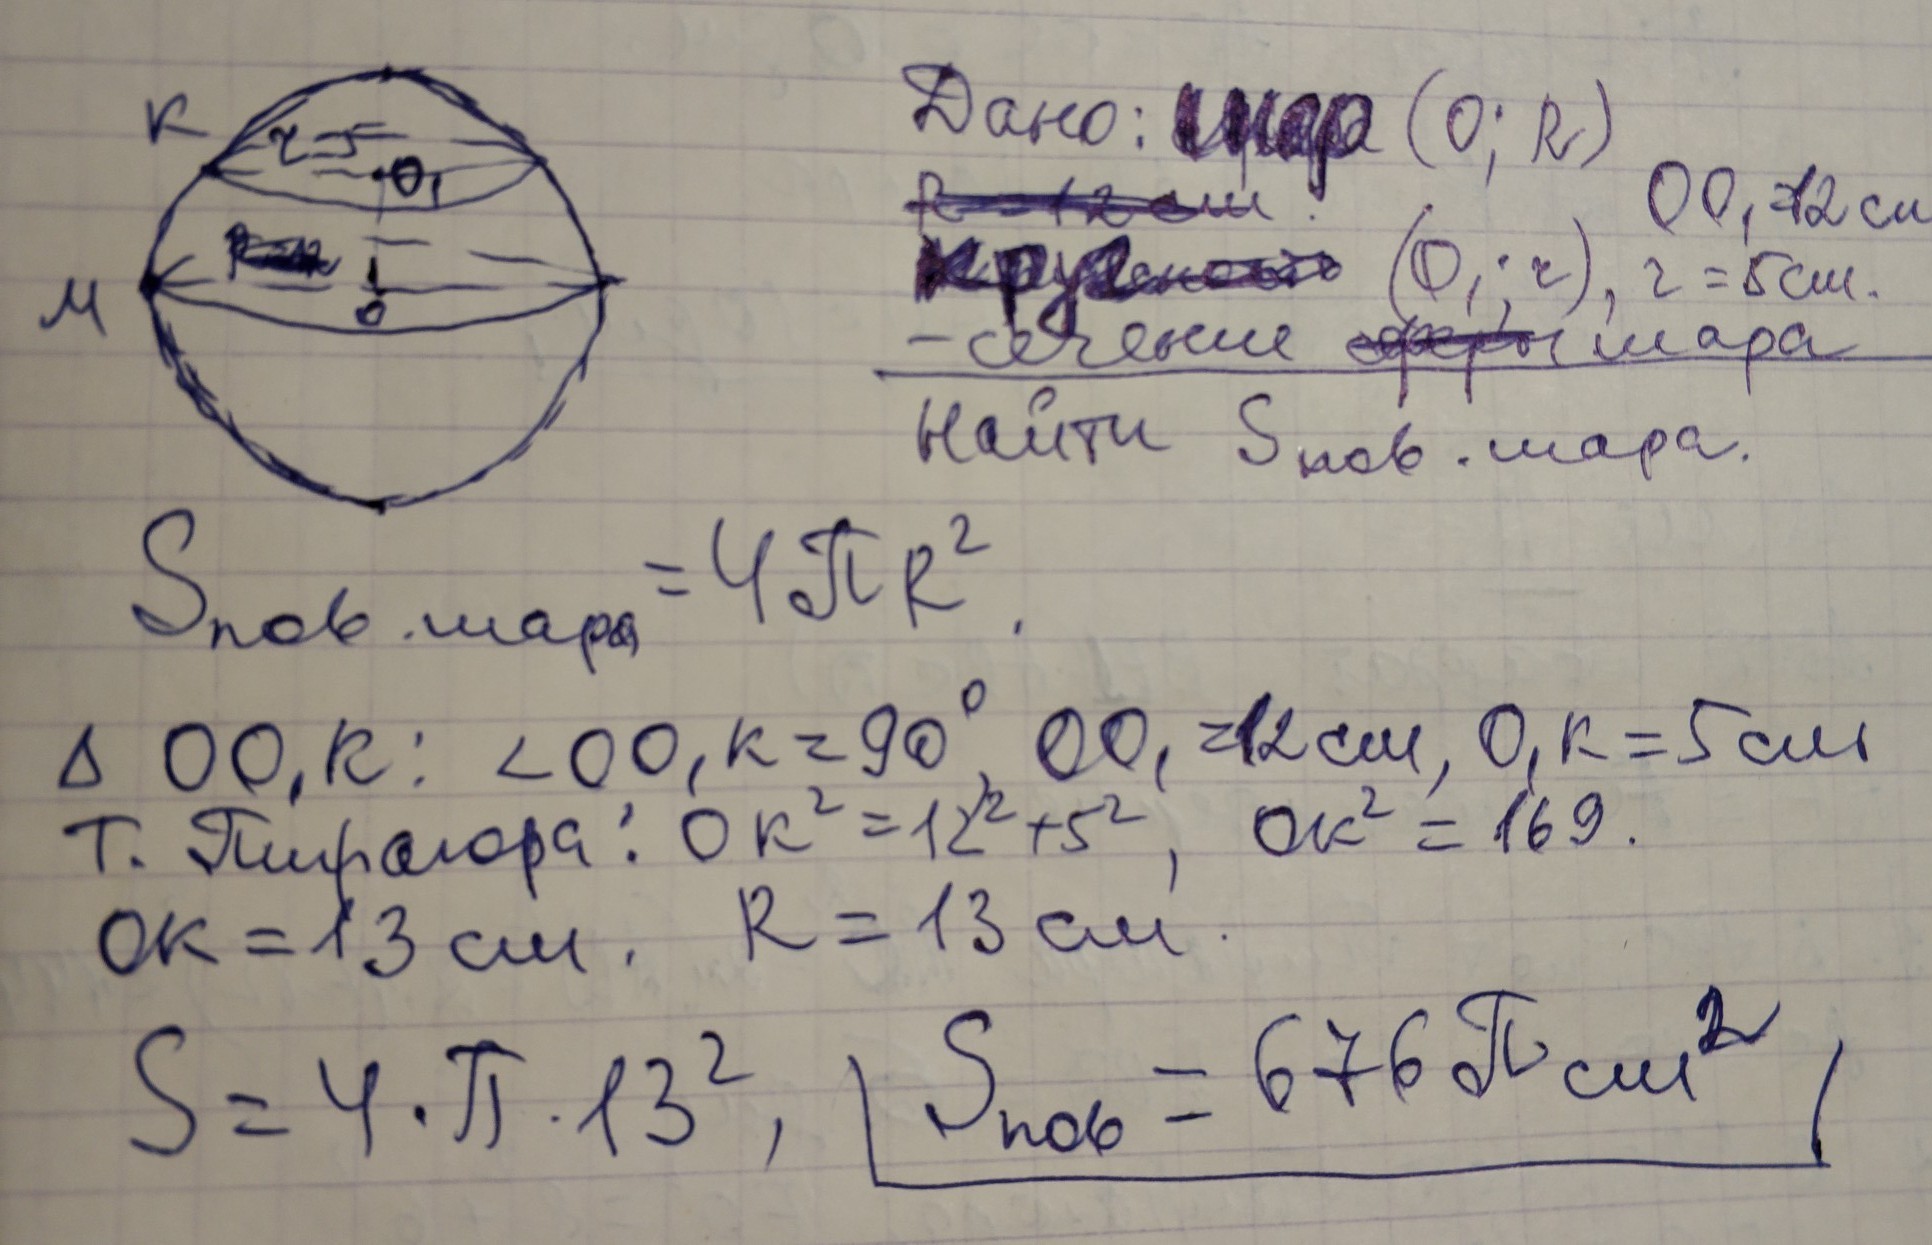 К
r=5
O₁
М
O
Дано: шар (O; R)
R=12 см.
OO₁=12 см
(O₁; r), r=5см.
– сечение шара
Найти Sпов. шара.
Sпов. шара = 4πR².
Δ OO₁K: <OO₁K=90°, OO₁=12см, O₁K=5см
Т. Пифагора: OK²=12²+5², OK²=169.
OK=13 см. R=13 см.
S=4·π·13², Sпов=676π см²